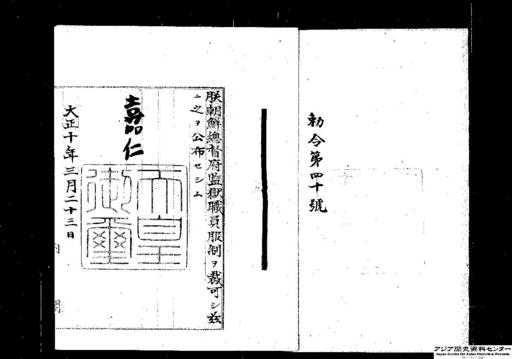 勅令第四十號
朕朝鮮總督府監獄職員服制ヲ裁可シ茲
ニ之ヲ公布セシム
嘉仁
天皇御璽
大正十年三月二十三日
アジア歴史資料センター
Japan Center for Asian Historical Records